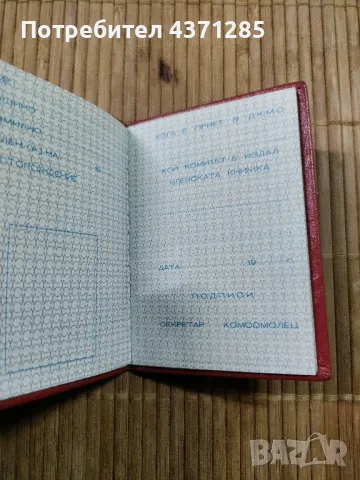 Потребител 4371285
ФАМИЛНО
РОДЕН (А) НА
МЕСТОРОЖДЕНИЕ
КОГА Е ПРИЕТ В ДКМС
КОЙ КОМИТЕТ Е ИЗДАЛ
ЧЛЕНСКАТА КНИЖКА
ДАТА 19 Г.
ПОДПИСИ
СЕКРЕТАР КОМСОМОЛЕЦ
BAZAR